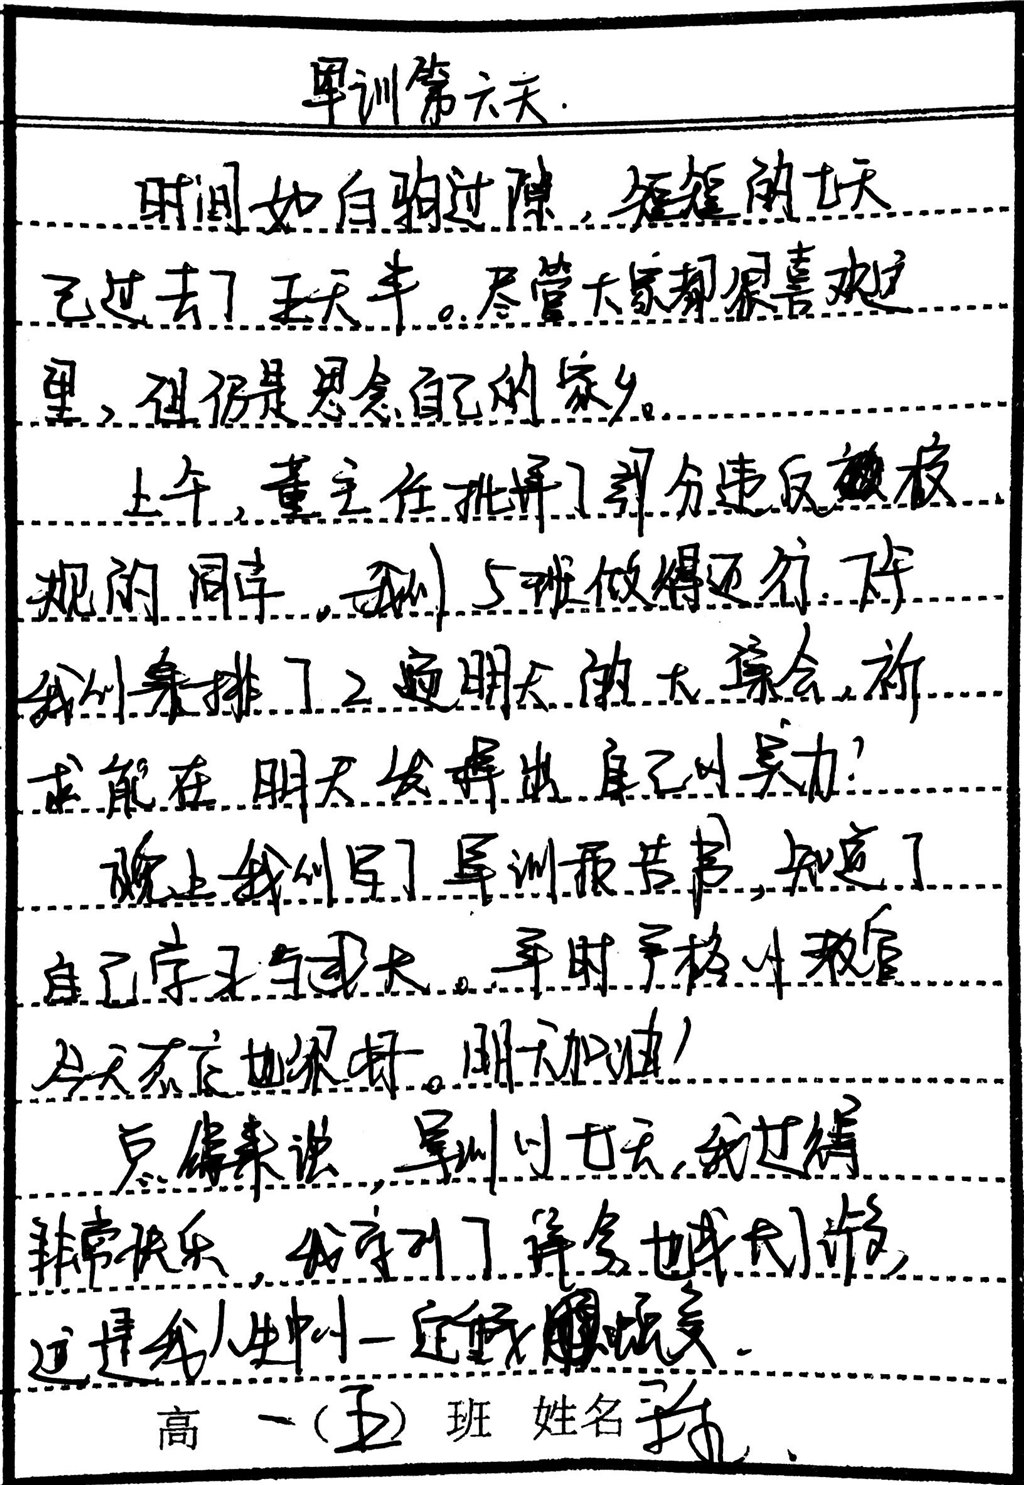 军训第六天.
时间如白驹过隙，短短的七天
已过去了五天半。尽管大家都很喜欢这
里，但仍是思念自己的家乡。
上午，董主任批评了部分违反校
规的同学，我们5班做得还行.下午
我们彩排了2遍明天的大集会，祈
求能在明天发挥出自己的实力！
晚上我们写了军训报告书，知道了
自己学习与成长。平时严格的教官
今天表亡也很好。明天加油！
总体来说，军训的七天，我过得
非常快乐，我学到了许多也成长了许多，
这是我人生中的一定重我蜕变.
高一（五）班 姓名